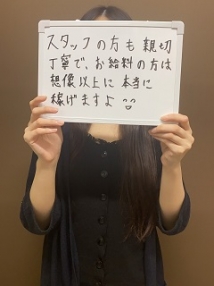 スタッフの方も親切
丁寧で、お給料の方は
想像以上に本当に
稼げますよ